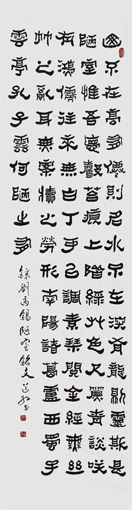 山不在高有僊則名水不在深有龍則靈斯是
陋室惟吾德馨苔痕上階綠草色入簾青談笑
有鴻儒往來無白丁可以調素琴閱金經無絲
竹之亂耳無案牘之勞形南陽諸葛廬西蜀子
雲亭孔子云何陋之有
錄劉禹錫陋室銘文